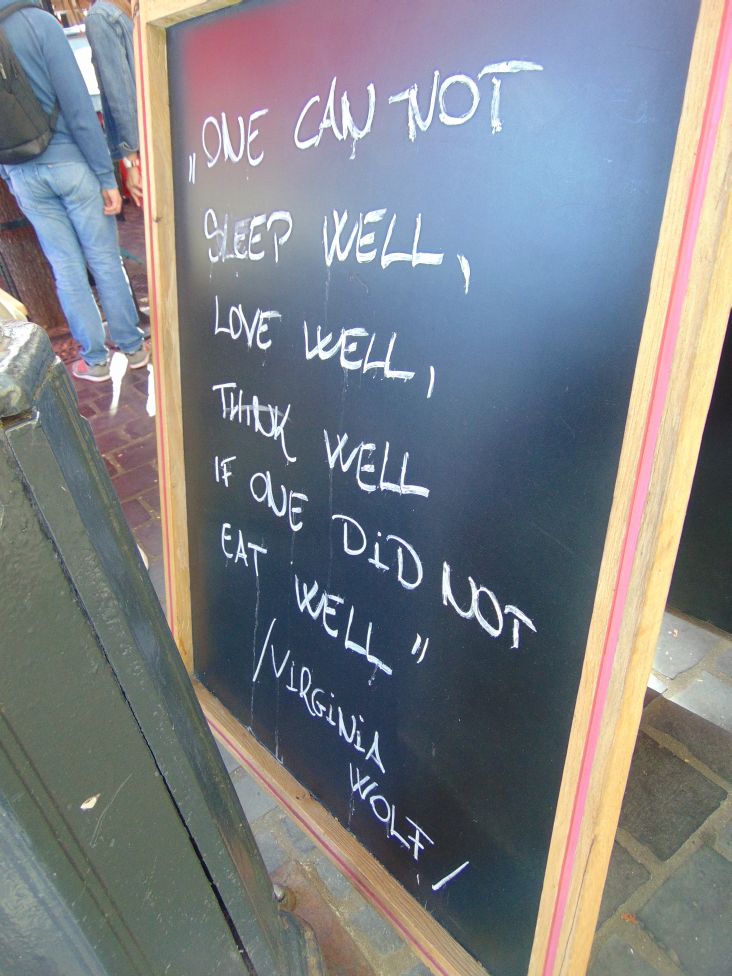 „ONE CAN NOT
SLEEP WELL,
LOVE WELL,
THINK WELL
IF ONE DiD NOT
EAT WELL"
/ViRGiNiA
WOLF/